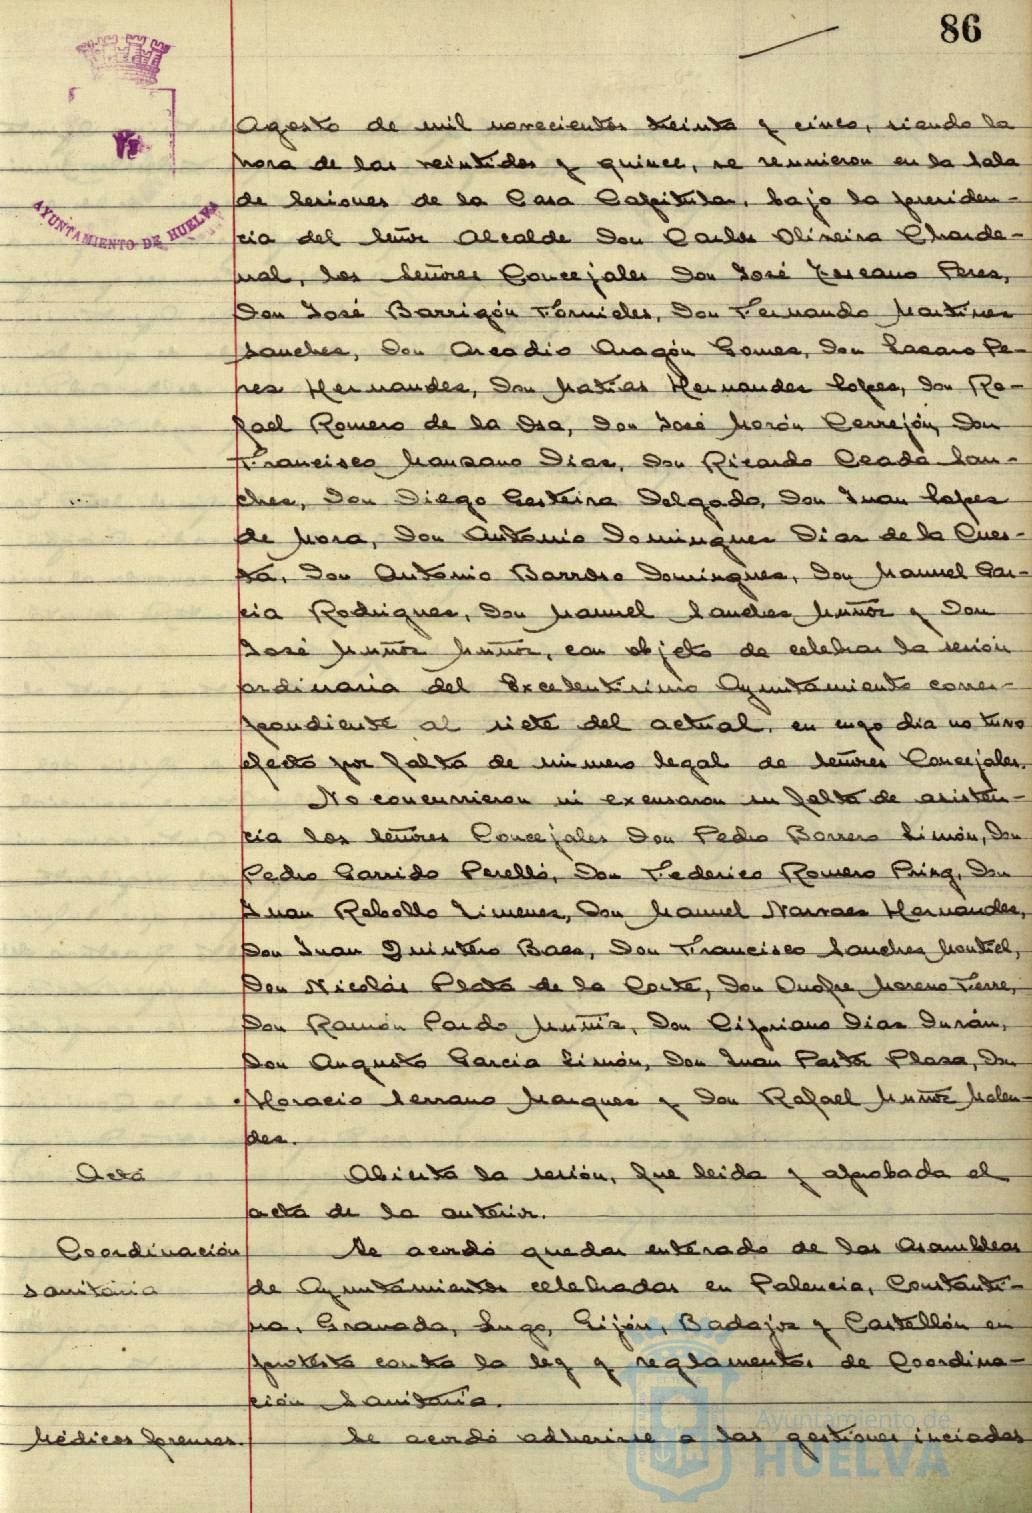 86
AYUNTAMIENTO DE HUELVA
Agosto de mil novecientos treinta y cinco, siendo la
hora de las veintidos y quince, se reunieron en la Sala
de Sesiones de la Casa Capitular, bajo la presiden-
cia del Señor Alcalde Don Carlos Oliveira Charde-
nal, los Señores Concejales Don José Toscano Peres,
Don José Barrigón Fornieles, Don Fernando Martines
Sanches, Don Arcadio Aragón Gomes, Don Lasaro Pe-
res Hernandes, Don Matias Hernandes Lopes, Don Ra-
fael Romero de la Osa, Don José Morón Cerrejón, Don
Francisco Mansano Dias, Don Ricardo Ceada San-
ches, Don Diego Gesteira Delgado, Don Juan Lopes
de Mora, Don Antonio Domingues Dias de la Cues-
ta, Don Antonio Barroso Domingues, Don Manuel Gar-
cia Rodrigues, Don Manuel Sanches Muños y Don
José Muños Muños, con objeto de celebrar la sesión
ordinaria del Excelentisimo Ayuntamiento corres-
pondiente al siete del actual, en cuyo dia no tuvo
efecto por falta de número legal de Señores Concejales.
No concurrieron ni excusaron su falta de asisten-
cia los Señores Concejales Don Pedro Borrero Limón, Don
Pedro Garrido Perelló, Don Federico Romero Pring, Don
Juan Rebollo Jimenes, Don Manuel Narvaes Hernandes,
Don Juan Quintero Baes, Don Francisco Sanches Montiel,
Don Nicolás Plata de la Corte, Don Onofre Moreno Ferre,
Don Ramón Pardo Muñis, Don Cipriano Dias Durán,
Don Augusto Garcia Limón, Don Juan Pastor Plasa, Don
Horacio Serrano Marques y Don Rafael Muños Melen-
des.
Acta
Abierta la sesión, fue leida y aprobada el
acta de la anterior.
Coordinación
sanitaria
Se acordó quedar enterado de las Asambleas
de Ayuntamientos celebradas en Palencia, Constanti-
na, Granada, Lugo, Gijón, Badajos y Castellón en
protesta contra la ley y reglamentos de Coordina-
ción Sanitaria.
Médicos forenses.
Se acordó adherirse a las gestiones iniciadas
Ayuntamiento de
HUELVA